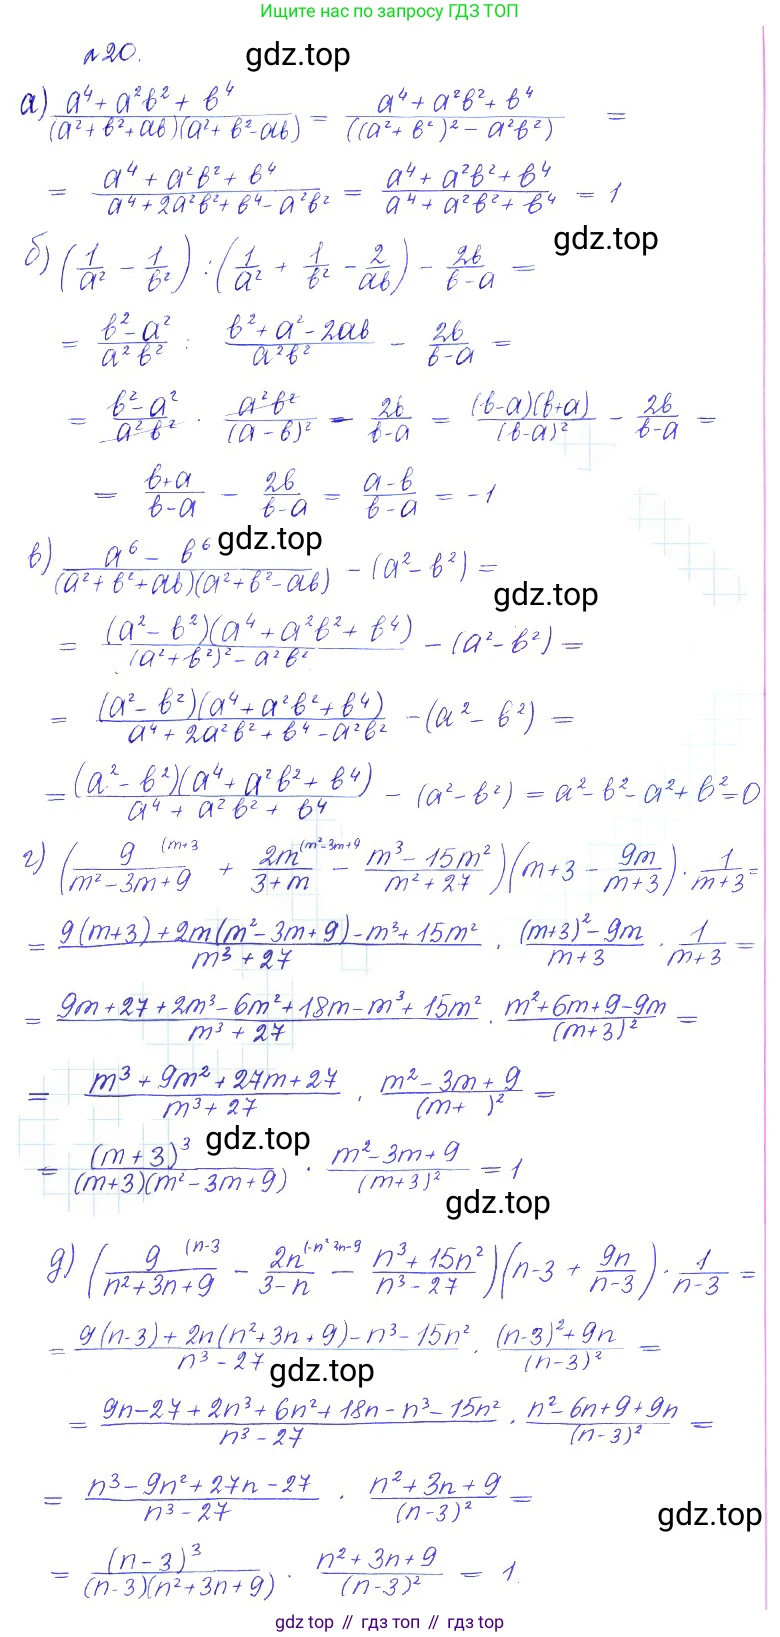 Ищите нас по запросу ГДЗ ТОП
№20. gdz.top
а) (a⁴ + a²b² + b⁴)/((a² + b² + ab)(a² + b² - ab)) = (a⁴ + a²b² + b⁴)/((a² + b²)² - a²b²) =
= (a⁴ + a²b² + b⁴)/(a⁴ + 2a²b² + b⁴ - a²b²) = (a⁴ + a²b² + b⁴)/(a⁴ + a²b² + b⁴) = 1
gdz.top
б) (1/a² - 1/b²) : (1/a² + 1/b² - 2/ab) - 2b/(b-a) =
= (b² - a²)/(a²b²) : (b² + a² - 2ab)/(a²b²) - 2b/(b-a) =
= (b² - a²)/(a²b²) · (a²b²)/(a-b)² - 2b/(b-a) = (b-a)(b+a)/(b-a)² - 2b/(b-a) =
= (b+a)/(b-a) - 2b/(b-a) = (a-b)/(b-a) = -1
gdz.top
в) (a⁶ - b⁶)/((a² + b² + ab)(a² + b² - ab)) - (a² - b²) =
gdz.top
= (a² - b²)(a⁴ + a²b² + b⁴)/((a² + b²)² - a²b²) - (a² - b²) =
= (a² - b²)(a⁴ + a²b² + b⁴)/(a⁴ + 2a²b² + b⁴ - a²b²) - (a² - b²) =
= (a² - b²)(a⁴ + a²b² + b⁴)/(a⁴ + a²b² + b⁴) - (a² - b²) = a² - b² - a² + b² = 0
г) (9 (m+3/(m² - 3m + 9) + 2m (m²-3m+9/(3+m) - (m³ - 15m²)/(m² + 27))(m+3 - 9m/(m+3)) · 1/(m+3) =
= (9(m+3) + 2m(m² - 3m + 9) - m³ + 15m²)/(m³ + 27) · ((m+3)² - 9m)/(m+3) · 1/(m+3) =
= (9m + 27 + 2m³ - 6m² + 18m - m³ + 15m²)/(m³ + 27) · (m² + 6m + 9 - 9m)/(m+3)² =
= (m³ + 9m² + 27m + 27)/(m³ + 27) · (m² - 3m + 9)/(m+ )² =
gdz.top
= (m+3)³/((m+3)(m² - 3m + 9)) · (m² - 3m + 9)/(m+3)² = 1
gdz.top
д) (9 (n-3/(n² + 3n + 9) - 2n (-n² 3n-9/(3-n) - (n³ + 15n²)/(n³ - 27))(n-3 + 9n/(n-3)) · 1/(n-3) =
= (9(n-3) + 2n(n² + 3n + 9) - n³ - 15n²)/(n³ - 27) · ((n-3)² + 9n)/(n-3)² =
gdz.top
= (9n - 27 + 2n³ + 6n² + 18n - n³ - 15n²)/(n³ - 27) · (n² - 6n + 9 + 9n)/(n-3)² =
= (n³ - 9n² + 27n - 27)/(n³ - 27) · (n² + 3n + 9)/(n-3)² =
gdz.top
= (n-3)³/((n-3)(n² + 3n + 9)) · (n² + 3n + 9)/(n-3)² = 1.
gdz.top // гдз топ // гдз top